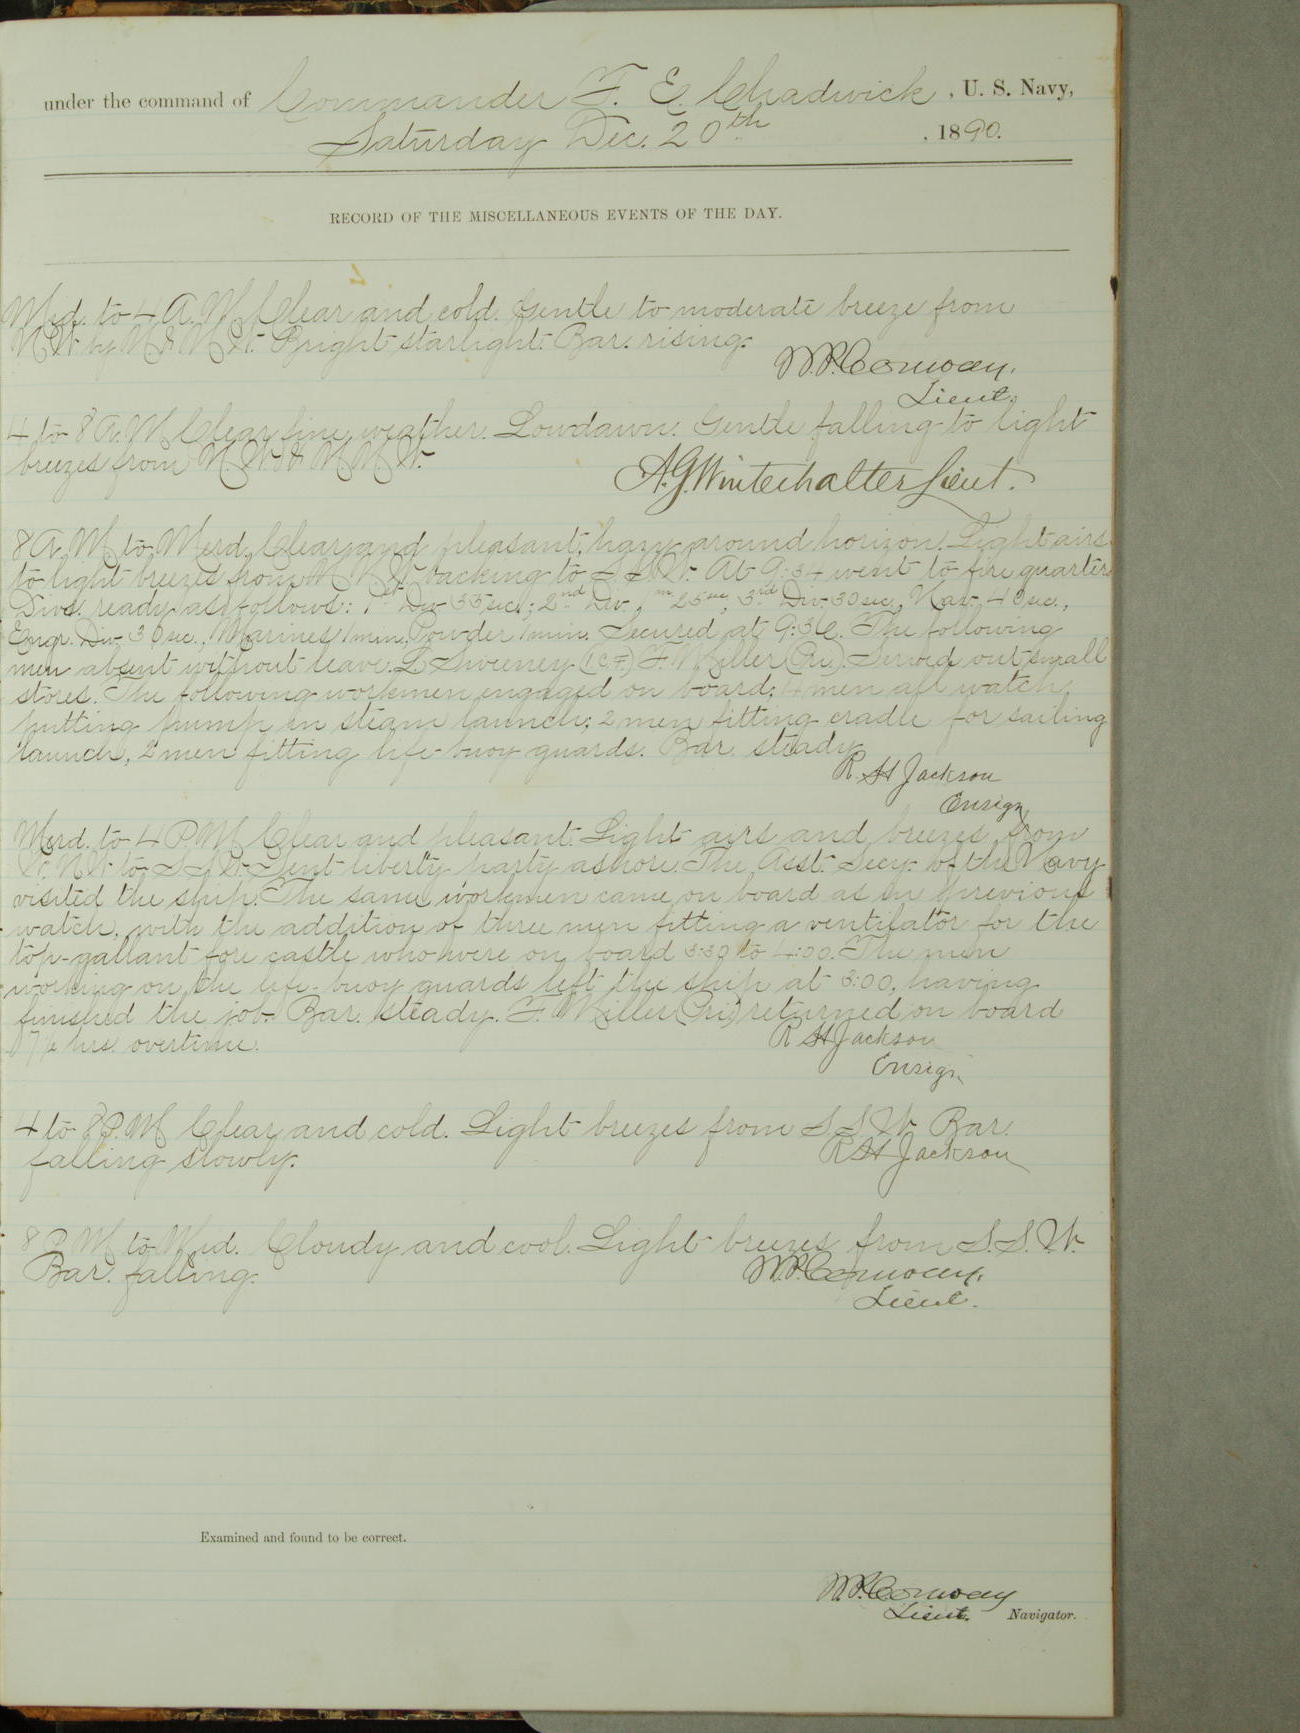 under the command of Commander F. E. Chadwick, U. S. Navy,
Saturday Dec. 20th, 1890.
RECORD OF THE MISCELLANEOUS EVENTS OF THE DAY.
Mid. to 4 A.M. Clear and cold. Gentle to moderate breeze from
N.W. by N & N.W. Bright starlight. Bar. rising.
W.P. Conway.
Lieut.
4 to 8 A.M. Clear fine weather. Low dawn. Gentle falling to light
breezes from N.W. & N.N.W.
A.G. Winterhalter Lieut.
8 A.M. to Merd. Clear and pleasant, hazy around horizon. Light airs
to light breezes from N.N.W. backing to S.S.W. At 9:34 went to fire quarters
Divs. ready as follows: 1st Div 35 sec.; 2nd Div. 1m 25sec, 3rd Div. 30 sec, Nav. 40 sec.,
Engr. Div. 30 sec., Marines 1 min. Powder 1 min. Secured at 9:36. The following
men absent without leave. L Sweeney (1 C.F.) F. Miller (Pri.). Served out small
stores. The following workmen engaged on board; 4 men all watch,
putting pump in steam launch; 2 men fitting cradle for sailing
launch, 2 men fitting life-buoy guards. Bar. steady.
R. H Jackson
Ensign
Merd. to 4 P.M. Clear and pleasant. Light airs and breezes from
W.N.W. to S.S.W. Sent liberty party ashore. The Asst. Secy. of the Navy
visited the ship. The same workmen came on board as in previous
watch, with the addition of three men fitting a ventilator for the
top-gallant fore castle who were on board 3:30 to 4:00. The men
working on the life-buoy guards left the ship at 3:00, having
finished the job. Bar. steady. F. Miller (Pri) returned on board
hrs. overtime.
R H Jackson
Ensign
4 to 8 P.M. Clear and cold. Light breezes from S.S.W. Bar.
falling slowly.
R H Jackson
8 P.M. to Mid. Cloudy and cool. Light breezes from S.S.W.
Bar. falling.
W.P. Conway.
Lieut.
Examined and found to be correct.
W.P. Conway
Lieut. Navigator.